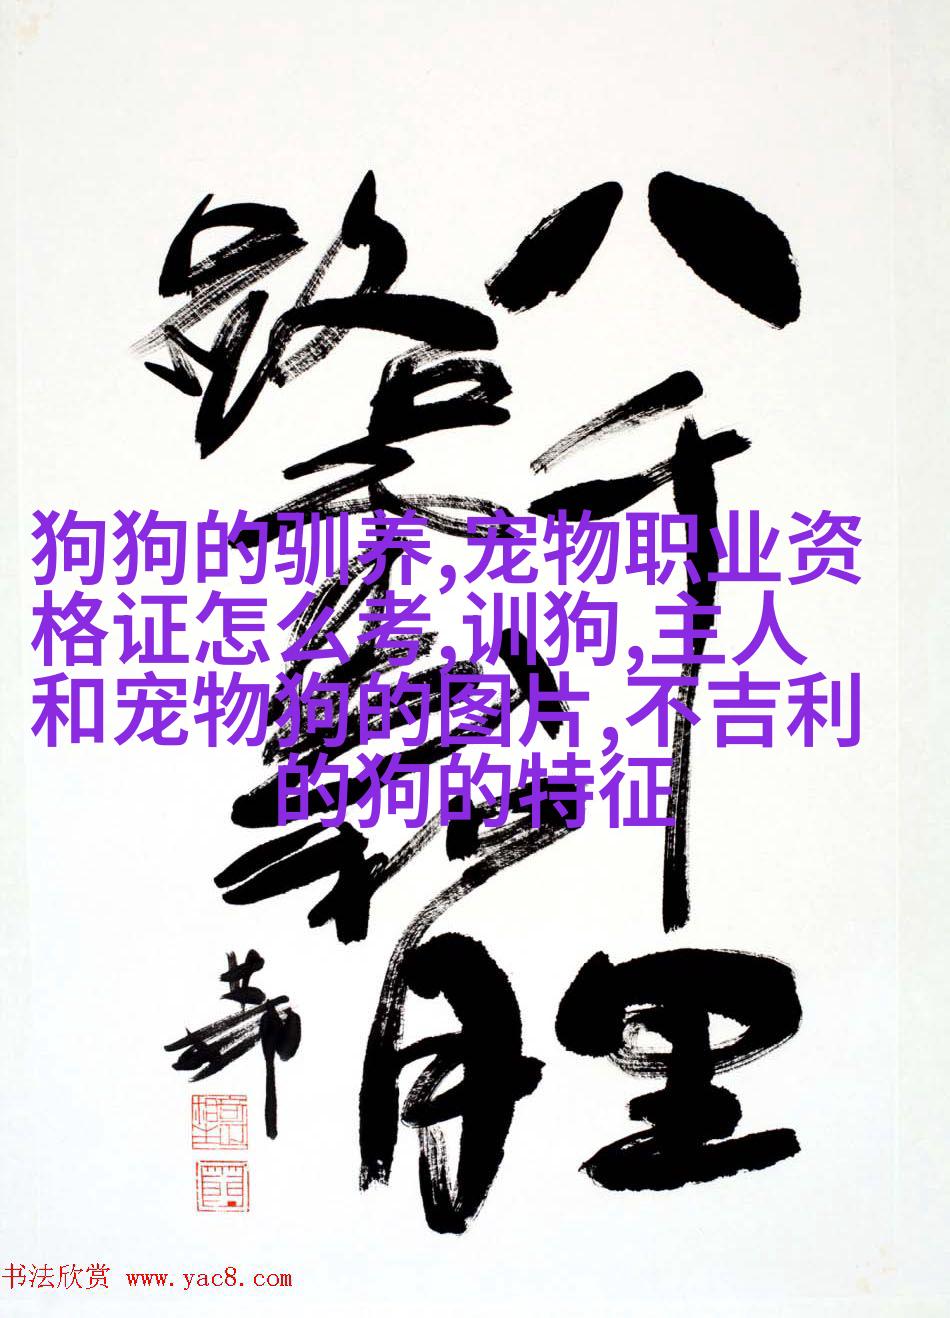 八千里
路雲和月
狗狗的驯养,宠物职业资
格证怎么考,训狗,主人
和宠物狗的图片,不吉利
的狗的特征
书法欣赏 www.yac8.com